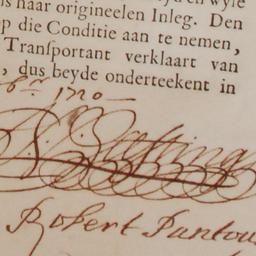 s naar origineelen Inleg. Den
p die Conditie aan te nemen,
Transportant verklaart van
, dus beyde onderteekent in
br. 1720
Robert Pantou